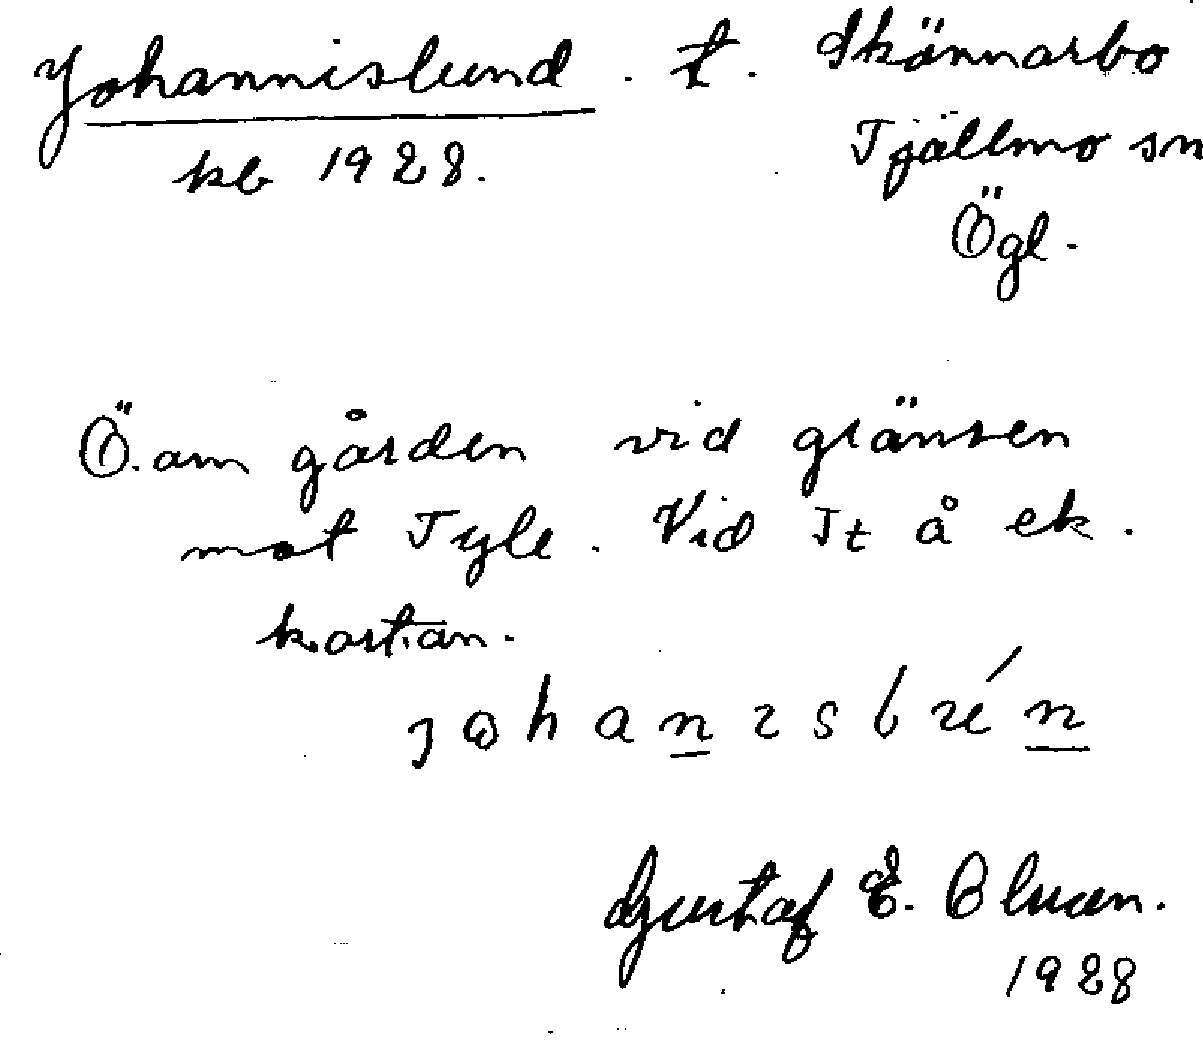 Johannislund . t. Skönnarbo
kb 1928. Tjällmo sn
Ögl.
Ö. om gården vid gränsen
mot Tyle. Vid Tt å ek.
kartan.
Gustaf E. Olson.
1928